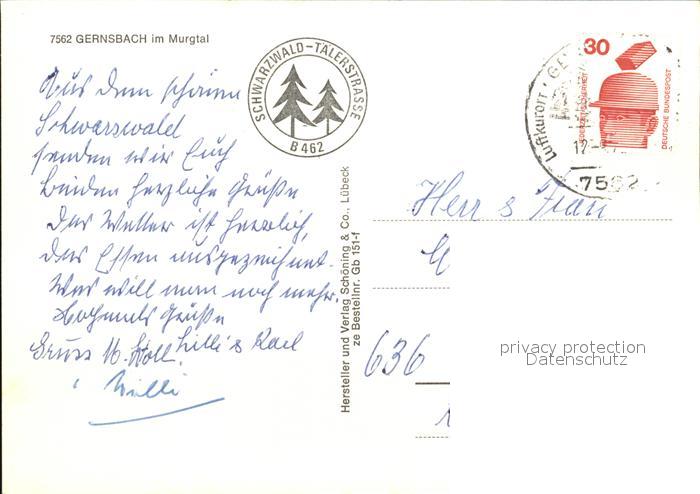 7562 GERNSBACH im Murgtal
SCHWARZWALD-TÄLERSTRASSE
B 462
Luftkurort
12
7562
30
JEDERZEIT SICHERHEIT
DEUTSCHE BUNDESPOST
Aus dem schönen
Schwarzwald
senden wir Euch
beiden herzliche Grüße
Das Wetter ist herrlich,
das Essen ausgezeichnet.
Was will man noch mehr.
Nochmals Grüße
Lilli & Karl
Gruss M.
Willi
Hersteller und Verlag Schöning & Co., Lübeck
ze Bestellnr. Gb 151-f
Herr & Frau
636
privacy protection
Datenschutz